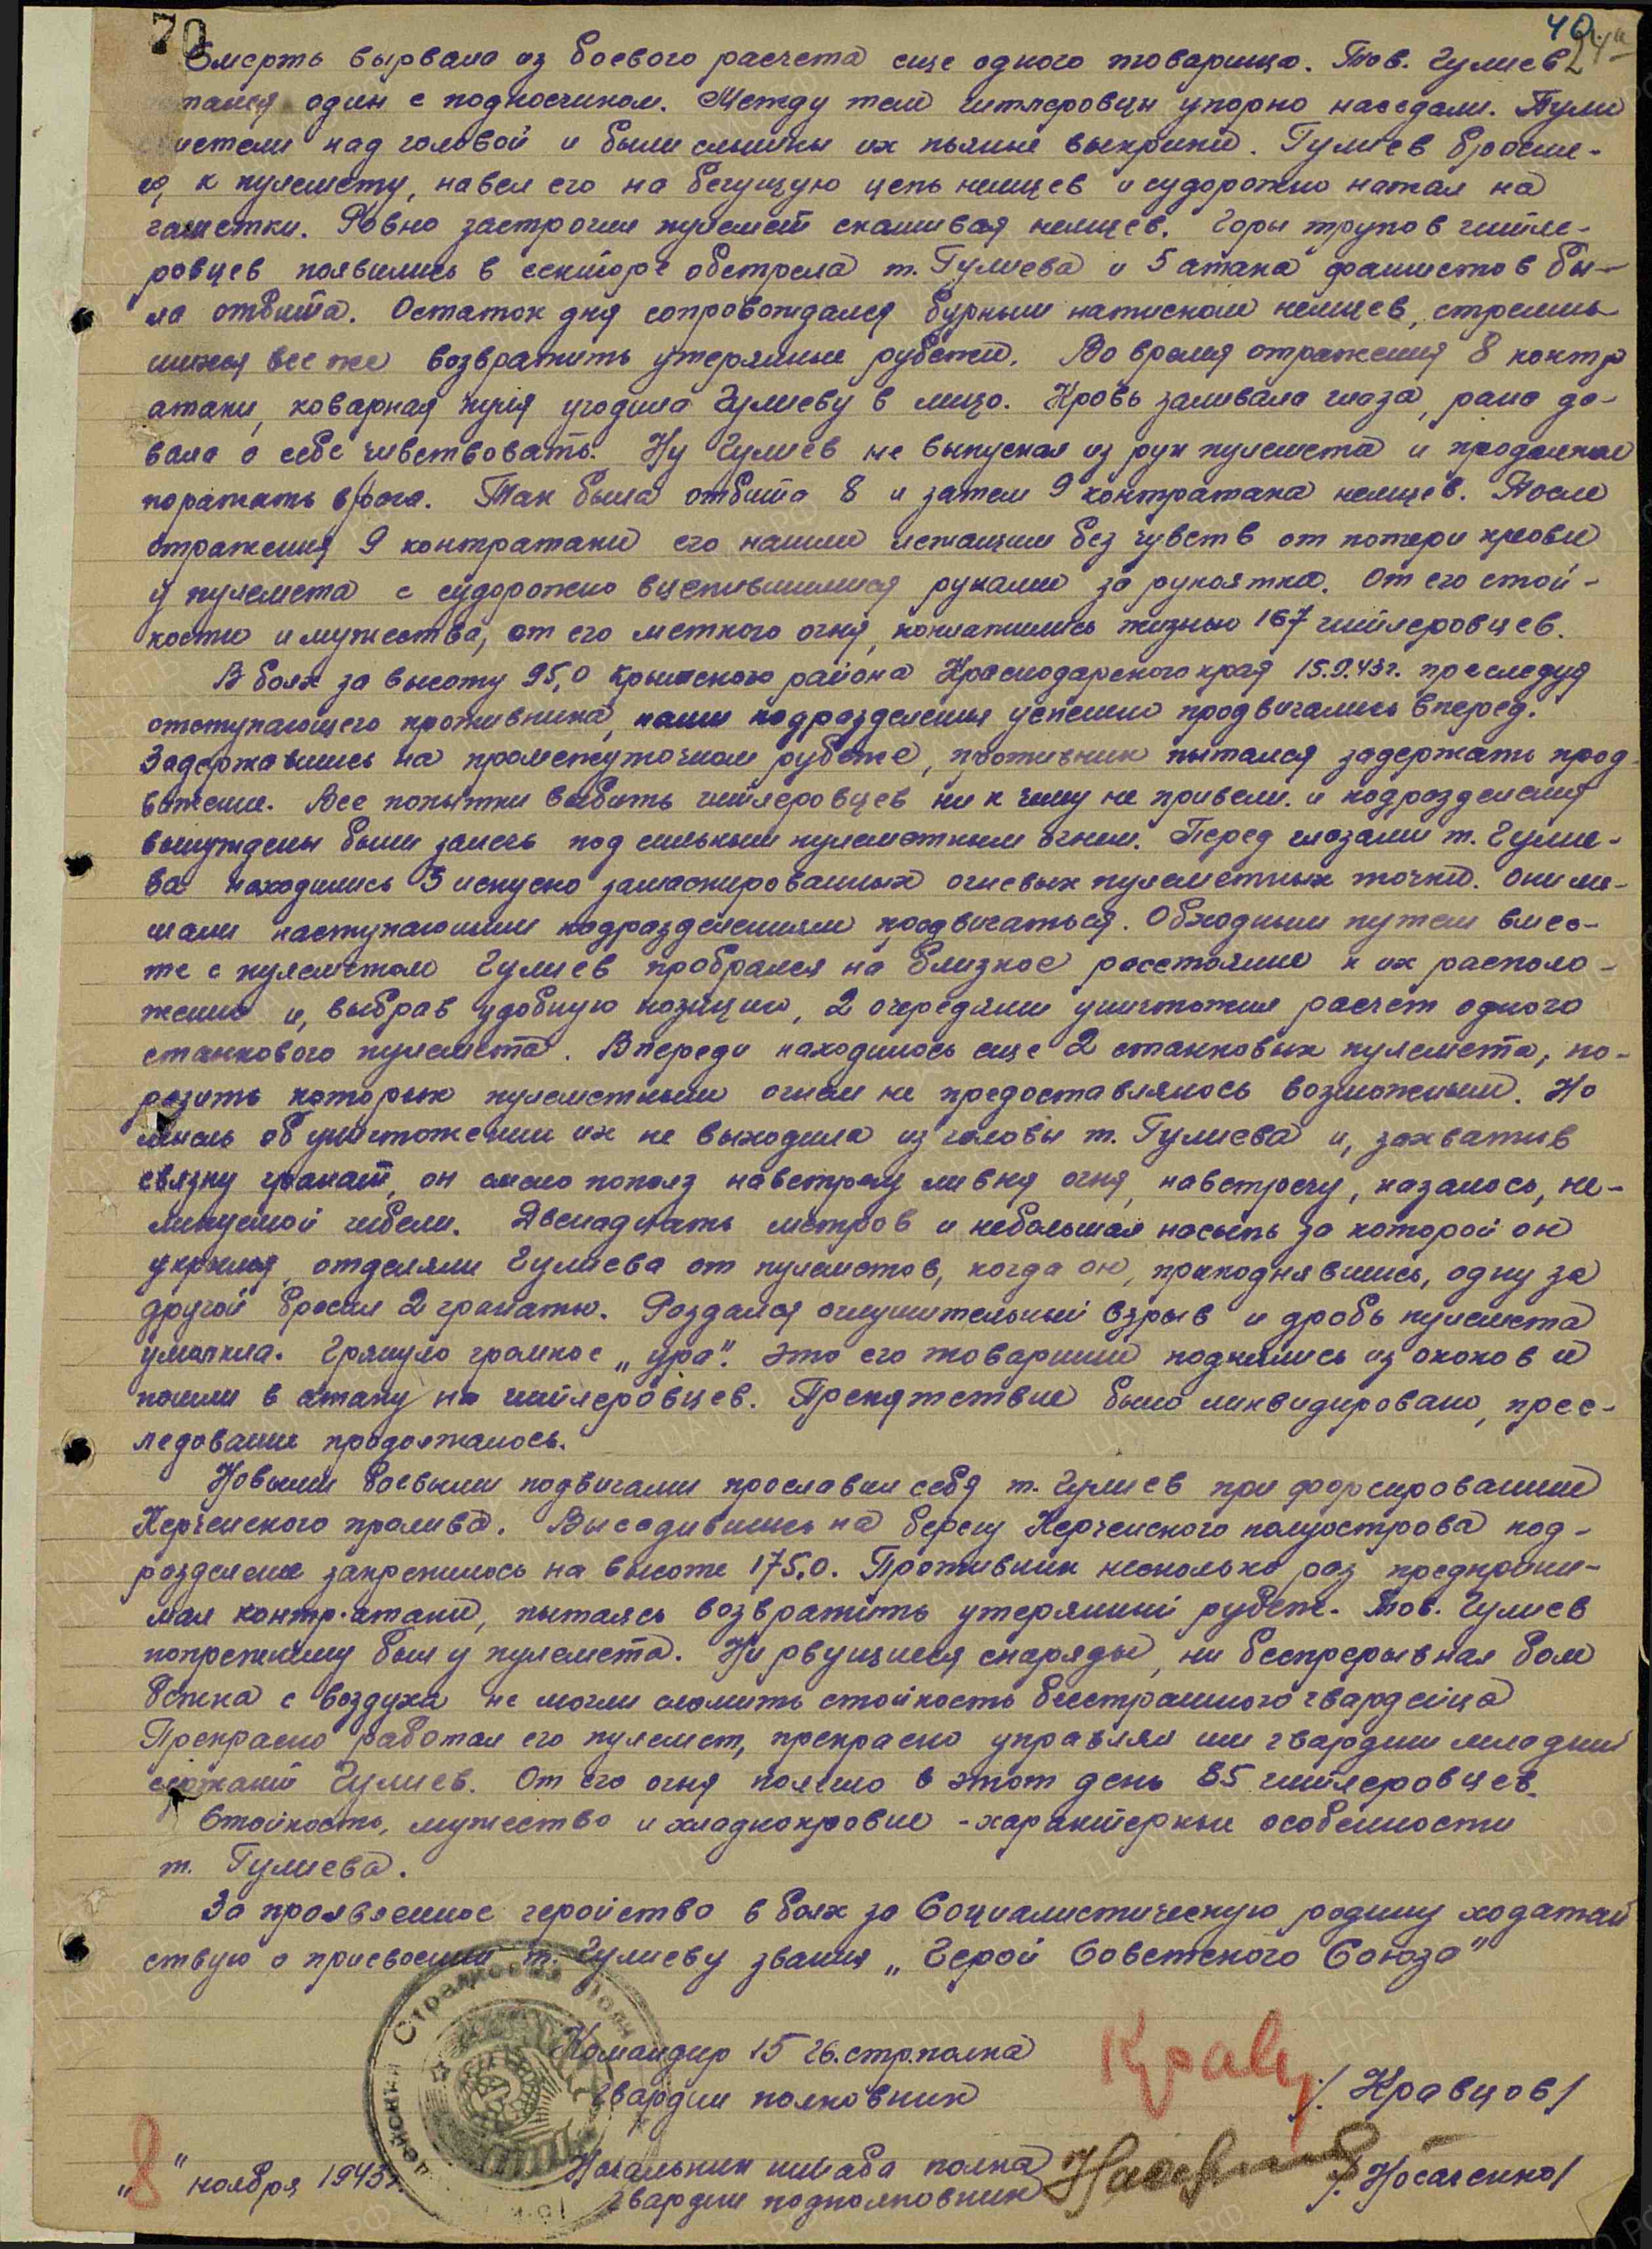 70
40.
24
Смерть вырвала из боевого расчета еще одного товарища. Тов. Гулиев
остался один с подносчиком. Между тем гитлеровцы упорно наседали. Пули
свистели над головой и были слышны их пьяные выкрики. Гулиев бросил-
ся к пулемету, навел его на бегущую цепь немцев и судорожно нажал на
гашетки. Ровно застрочил пулемет скашивая немцев. Горы трупов гитле-
ровцев появились в секторе обстрела т. Гулиева и 5 атака фашистов бы-
ла отбита. Остаток дня сопровождался бурным натиском немцев, стремив-
шихся все же возвратить утерянные рубежи. Во время отражения 8 контр
атаки, коварная пуля угодила Гулиеву в лицо. Кровь заливала глаза, рана да-
вала о себе чивствовать. Ну Гулиев не выпускал из рук пулемета и продолжал
поражать врага. Так была отбита 8 и затем 9 контратака немцев. После
отражения 9 контратаки его нашли лежащим без чувств от потери крови
у пулемета с судорожно вцепившимися руками за рукоятка. От его стой-
кости и мужества, от его меткого огня, поплатились жизнью 167 гитлеровцев.
В боях за высоту 95,0 Крымского района Краснодарского края 15.9.43г. преследуя
отступающего противника, наши подразделения успешно продвигались вперед.
Задержавшись на промежуточном рубеже, противник пытался задержать прод-
вижение. Все попытки выбить гитлеровцев ни к чему не привели и подразделения
вынуждены были залечь под сильным пулеметным огнем. Перед глазами т. Гулие-
ва находились 3 искусно замаскированных огневых пулеметных точки. Они ме-
шали наступающим подразделениям продвигаться. Обходным путем вмес-
те с пулеметом Гулиев пробрался на близкое расстояние к их располо-
жению и, выбрав удобную позицию, 2 очередями уничтожил расчет одного
станкового пулемета. Впереди находилось еще 2 станковых пулемета, по-
разить которых пулеметным огнем не предоставлялось возможным. Но
мысль об уничтожении их не выходила из головы т. Гулиева и, захватив
связку гранат, он смело пополз навстречу ливня огня, навстречу, казалось, не-
минуемой гибели. Двенадцать метров и небольшая насыпь за которой он
укрылся, отделяли Гулиева от пулеметов, когда он, приподнявшись, одну за
другой бросил 2 гранаты. Раздался оглушительный взрыв и дробь пулемета
умолкла. Грянуло громкое „ура". Это его товарищи поднялись из окопов и
пошли в атаку на гитлеровцев. Препятствие было ликвидировано, прес-
ледование продолжалось.
Новыми боевыми подвигами прославил себя т. Гулиев при форсировании
Керченского пролива. Высадившись на берегу Керченского полуострова под-
разделение закрепилось на высоте 175,0. Противник несколько раз предприни-
мал контр-атаки, пытаясь возвратить утерянный рубеж. Тов. Гулиев
попрежнему был у пулемета. Ни рвущиеся снаряды, ни беспрерывная бом
бежка с воздуха не могли сломить стойкость бесстрашного гвардейца
Прекрасно работал его пулемет, прекрасно управлял им гвардии младший
сержант Гулиев. От его огня полегло в этот день 85 гитлеровцев.
Стойкость, мужество и хладнокровие - характерные особенности
т. Гулиева.
За проявленное геройство в боях за Социалистическую родину ходатай
ствую о присвоении т. Гулиеву звания „Герой Советского Союза"
Командир 15 гв. стр. полка
гвардии полковник
Кравц
/Кравцов/
Начальник штаба полка
гвардии подполковник
/Носаченко/
„8" ноября 1943г.